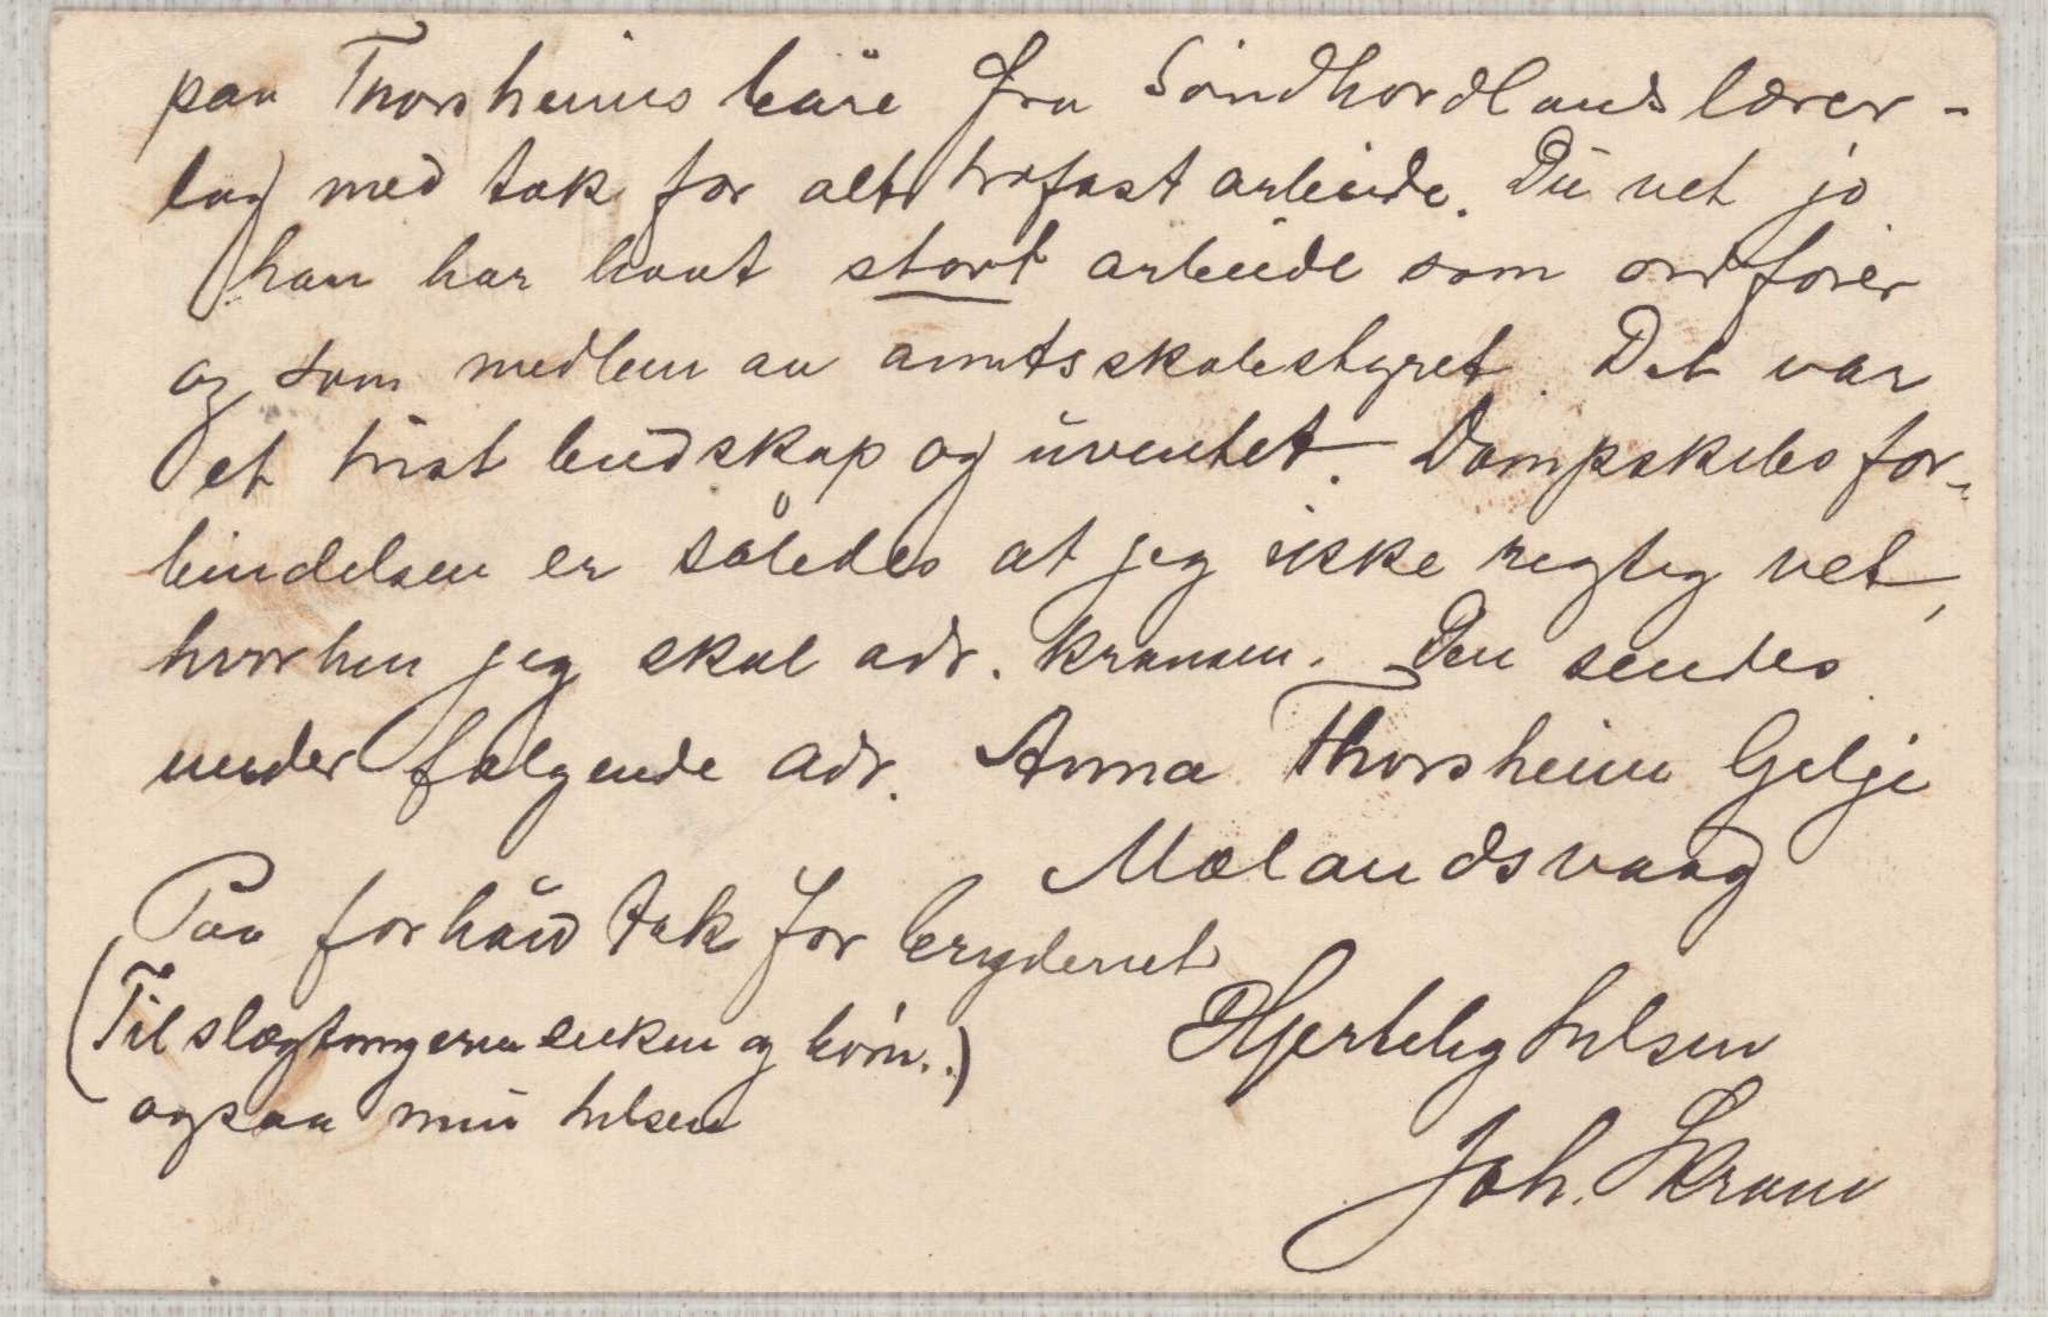 paa Thorsheims baare fra Söndhordlands lærer-
lag med tak for alt trofast arbeide. Du vet jo
han har havt stort arbeide som ordfører
og som medlem av amtsskolestyret. Det var
et trist budskap og uventet. Dampskibsfor-
bindelsen er således at jeg ikke regtig vet,
hvorhen jeg skal adr. kransen. Den sendes
under følgende adr. Anna Thorsheim Gilje
Mælandsvaag
Paa forhånd tak for bryderiet
Hjertelig hilsen
Joh.
(Til slægtningerne enken og børn..)
ogsaa min hilsen